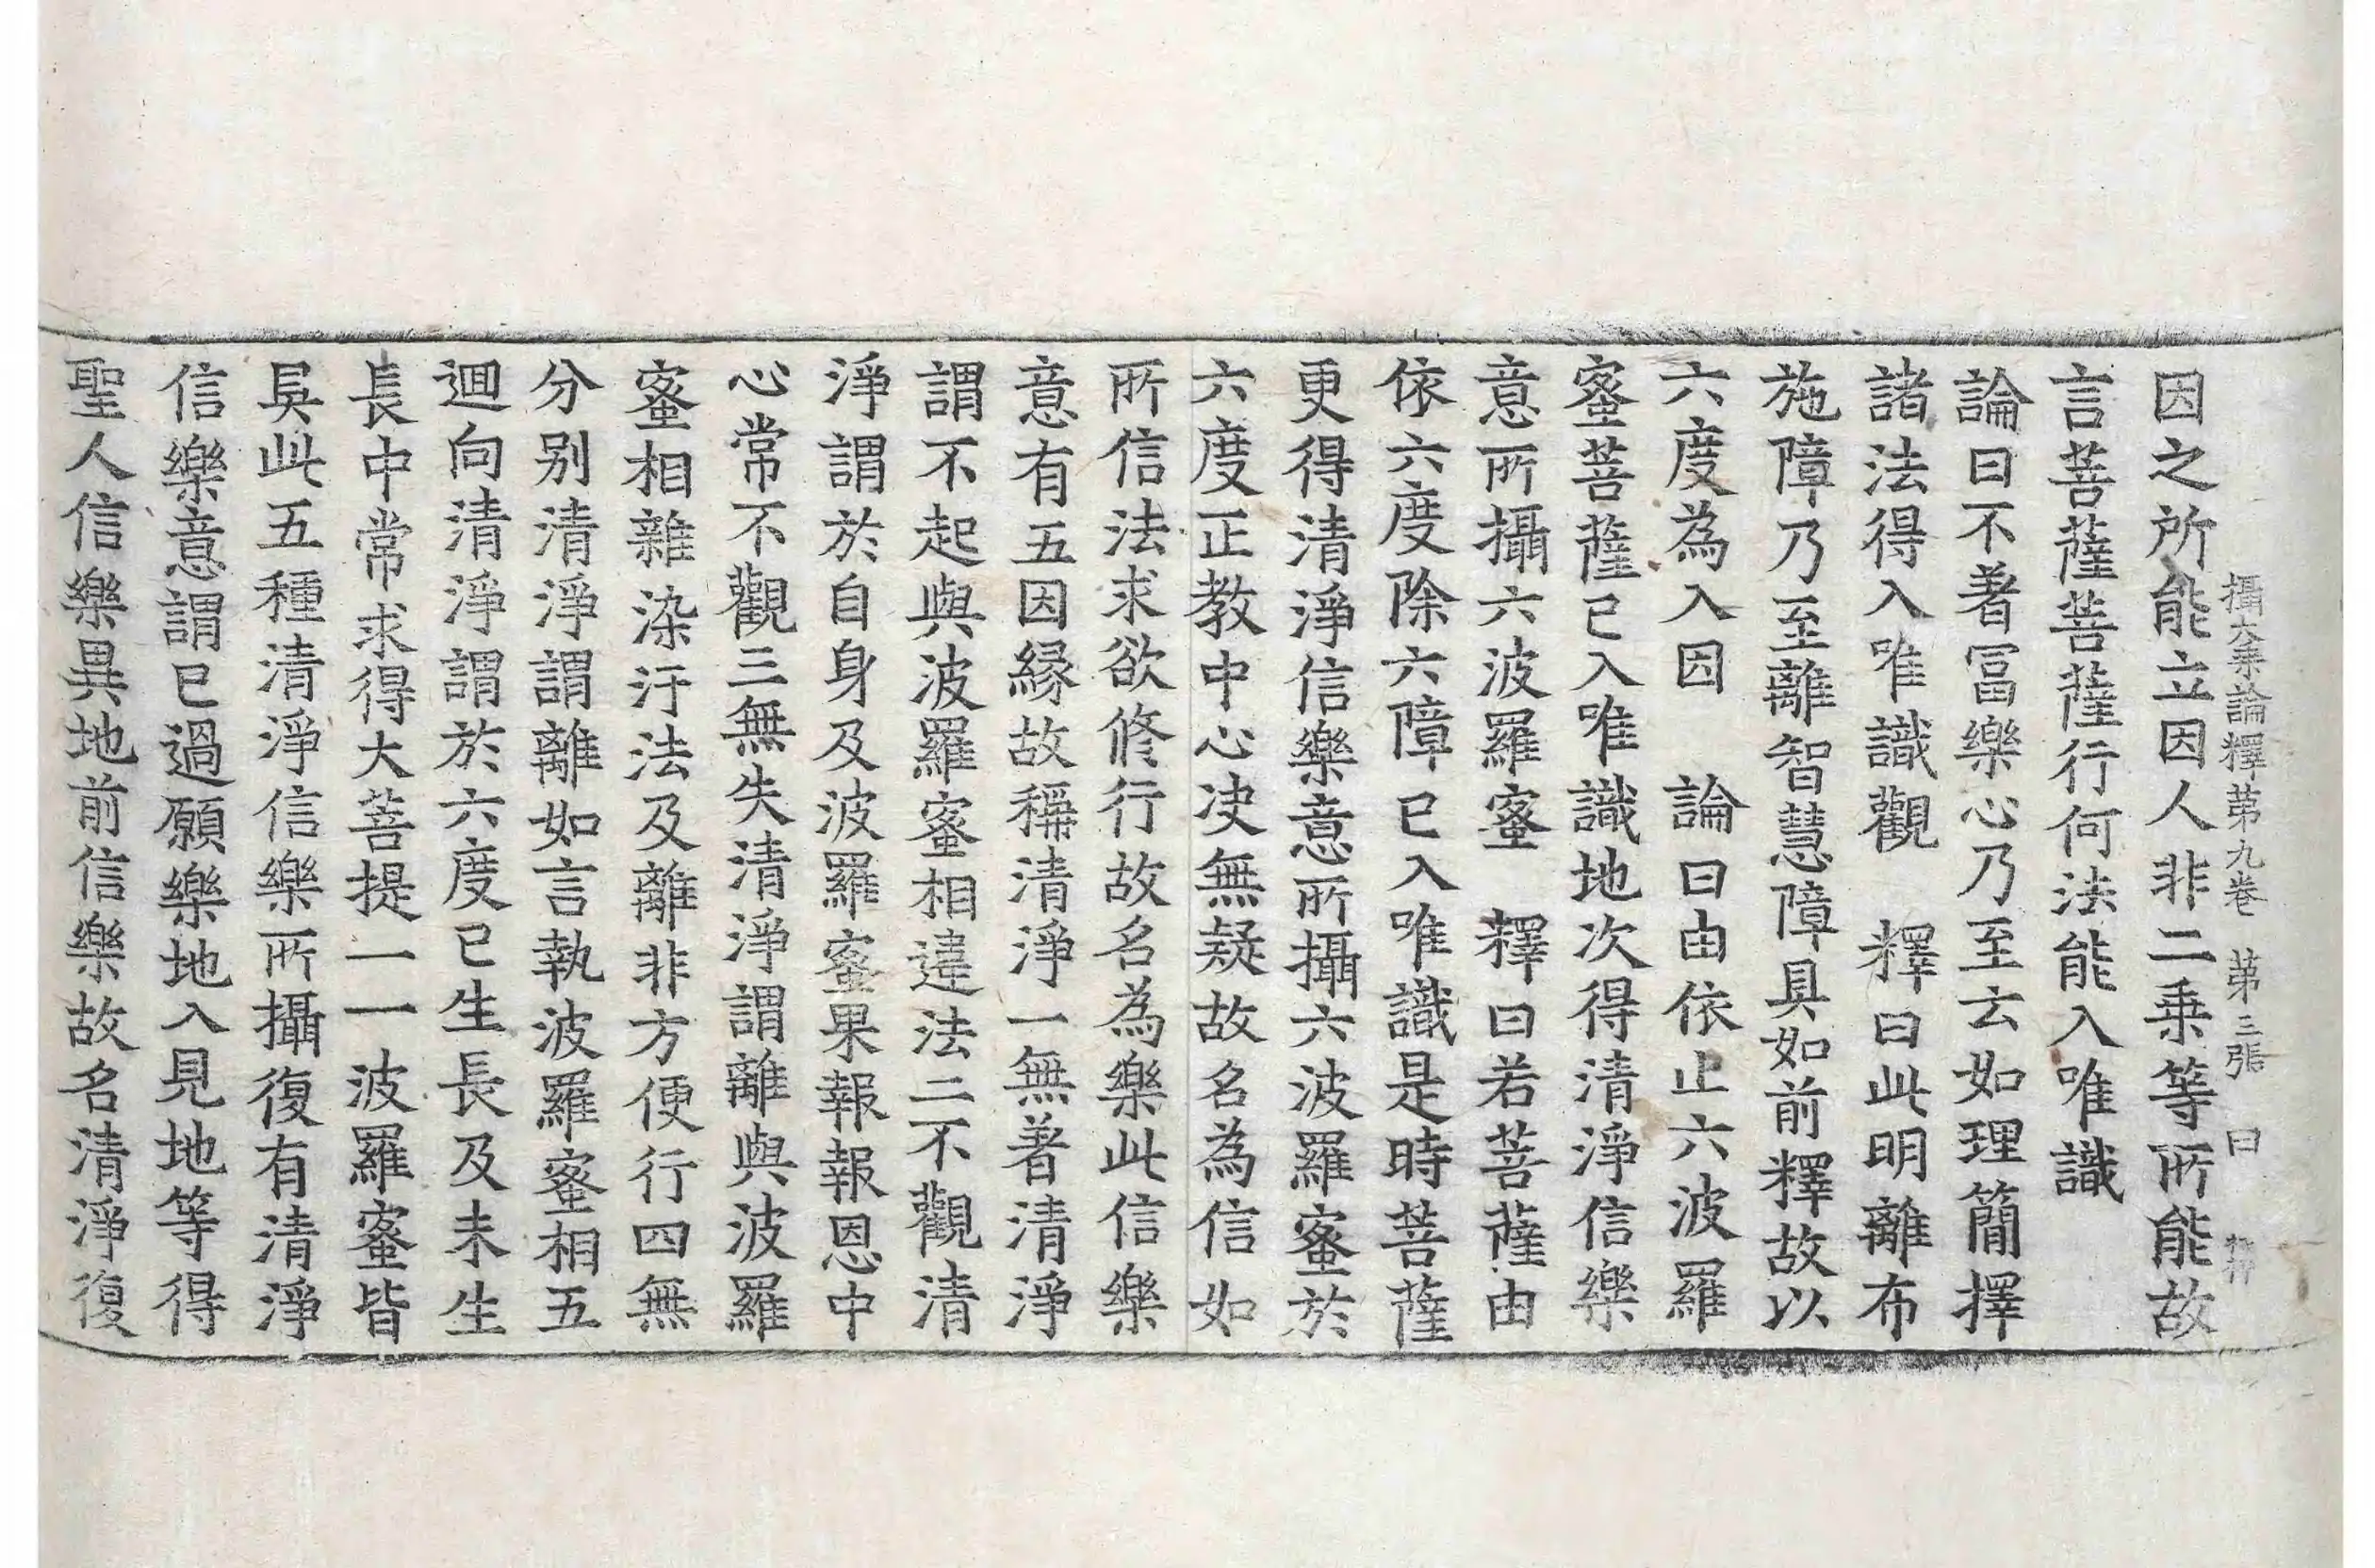 攝大乘論釋苐九卷　苐三張　曰
因之所能立因人非二乗等所能故
言菩薩菩薩行何法能入唯識
論曰不著冨樂心乃至云如理簡擇
諸法得入唯識觀　釋曰此明離布
施障乃至離智慧障具如前釋故以
六度為入因　論曰由依止六波羅
蜜菩薩已入唯識地次得清淨信樂
意所攝六波羅蜜　釋曰若菩薩由
依六度除六障已入唯識是時菩薩
更得清淨信樂意所攝六波羅蜜於
六度正教中心决無疑故名為信如
所信法求欲修行故名為樂此信樂
意有五因緣故稱清淨一無著清淨
謂不起與波羅蜜相違法二不觀清
淨謂於自身及波羅蜜果報報恩中
心常不觀三無失清淨謂離與波羅
蜜相雜染汙法及離非方便行四無
分别清淨謂離如言執波羅蜜相五
迴向清淨謂於六度已生長及未生
長中常求得大菩提一一波羅蜜皆
具此五種清淨信樂所攝復有清淨
信樂意謂已過願樂地入見地等得
聖人信樂異地前信樂故名清淨復